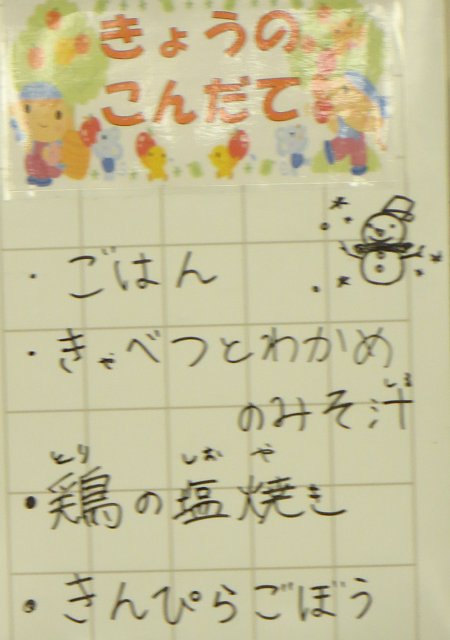 きょうの
こんだて
・ごはん
・きゃべつとわかめ
のみそ汁
・鶏の塩焼き
・きんぴらごぼう